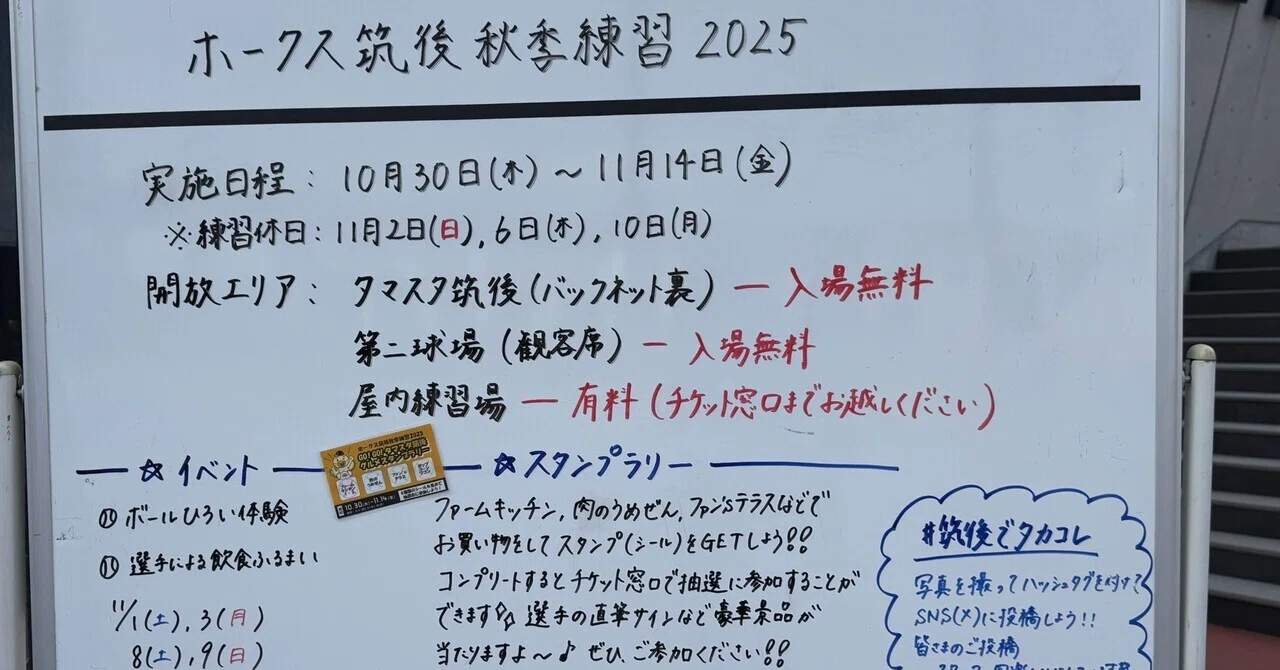 ホークス筑後 秋季練習 2025
実施日程: 10月30日(木)～11月14日(金)
※練習休日:11月2日(日),6日(木),10日(月)
開放エリア: タマスタ筑後(バックネット裏) ― 入場無料
第二球場(観客席) ― 入場無料
屋内練習場 ― 有料(チケット窓口までお越しください)
☆イベント
ボールひろい体験
選手による飲食ふるまい
11/1(土),3(月)
8(土),9(日)
ホークス筑後秋季練習2025
GO!GO!タマスタ筑後
グルメスタンプラリー
10.30(木)〜11.14(金)
☆スタンプラリー
ファームキッチン,肉のうめぜん,ファン'Sテラスなどで
お買い物をしてスタンプ(シール)をGETしよう!!
コンプリートするとチケット窓口で抽選に参加することが
できます 選手の直筆サインなど豪華景品が
当たりますよ～♪ ぜひ、ご参加ください!!
#筑後でタカコレ
写真を撮ってハッシュタグを付けて
SNS(X)に投稿しよう!!
皆さまのご投稿